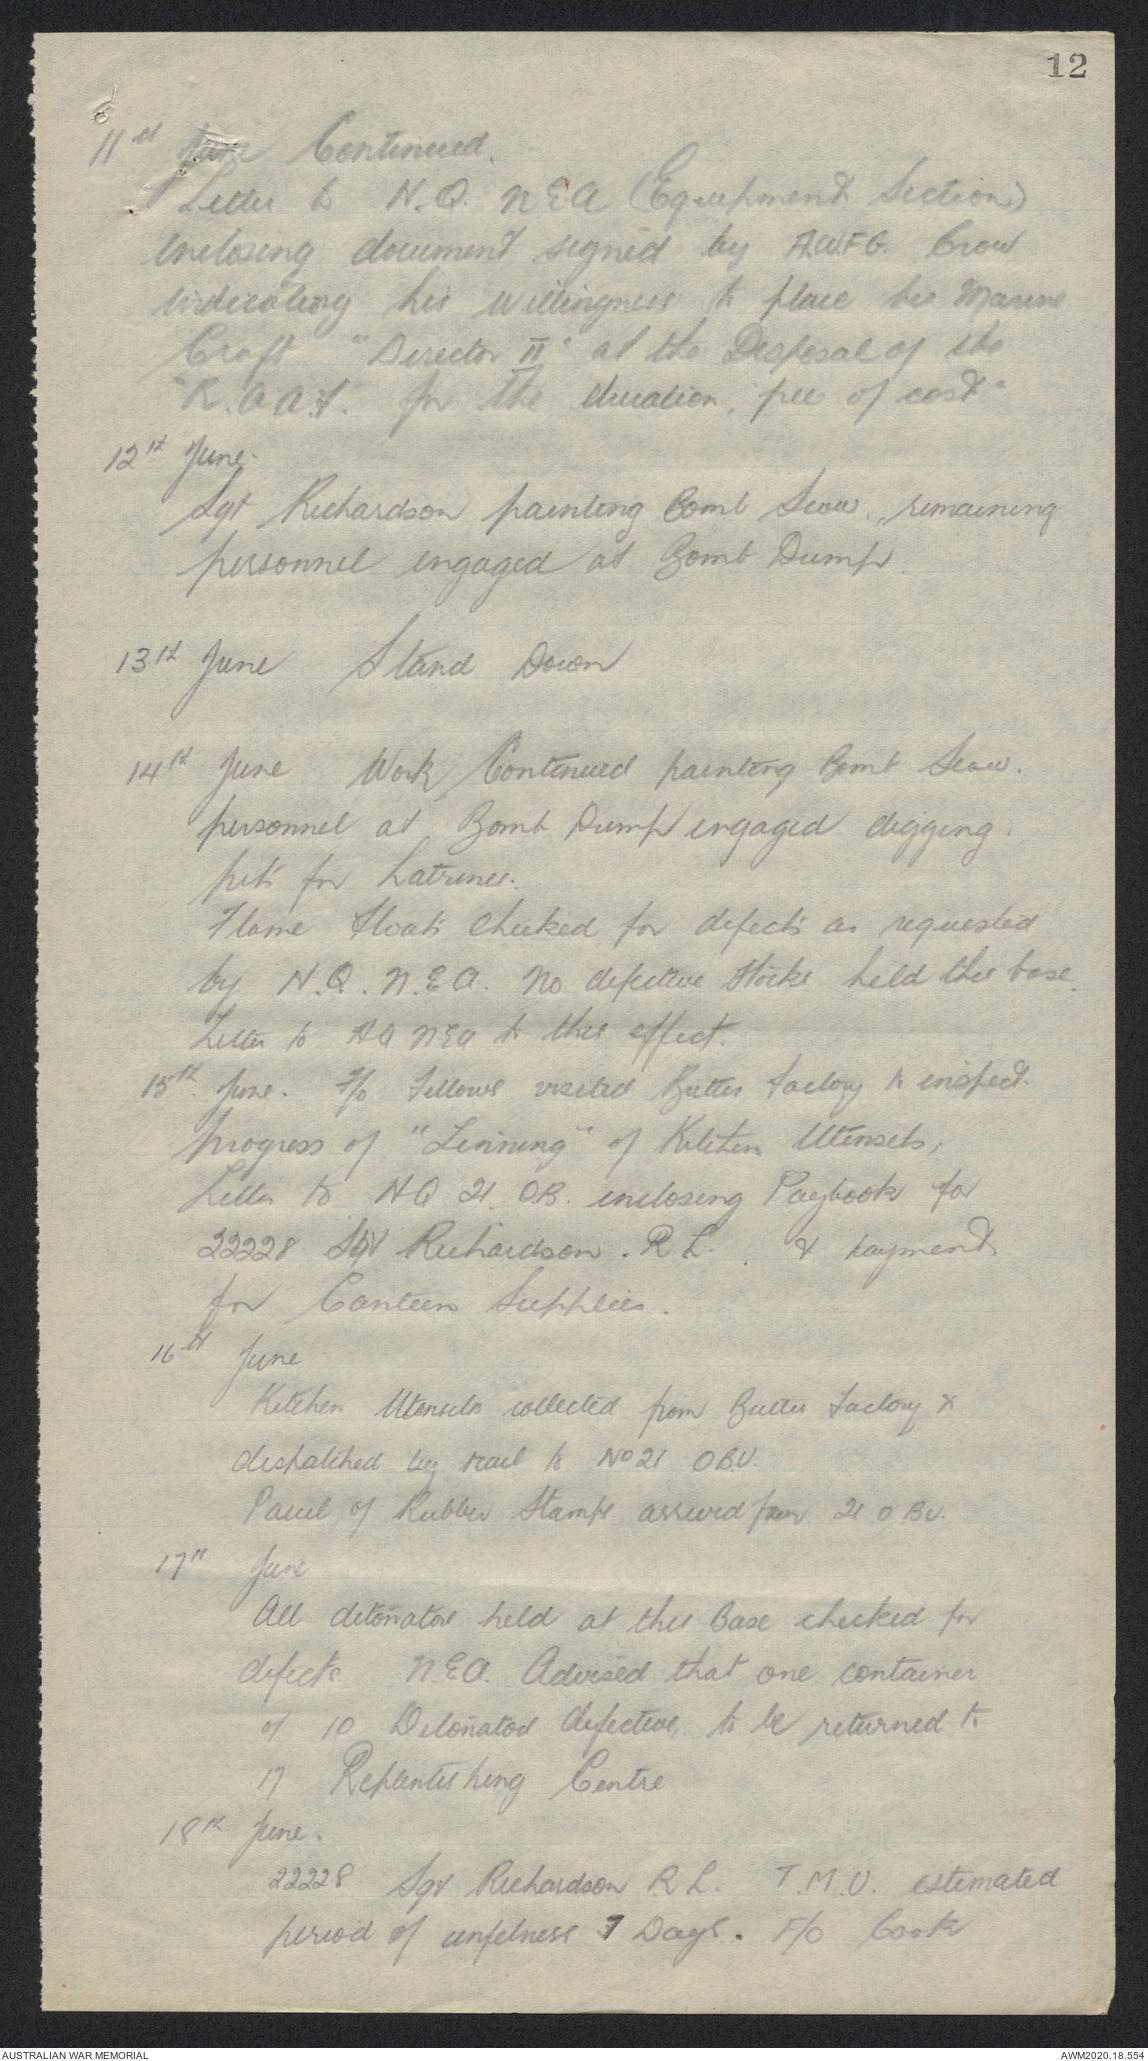 12
11th June Continued.
Letter to H.Q. N.E.A (Equipment Section)
enclosing document signed by A.W.F.G. Crow
indicating his willingness to place his Marine
Craft "Director II" at the Disposal of the
"R.A.A.F. for the duration, free of cost"
12th June.
Sgt Richardson painting Bomb Scow, remaining
personnel engaged at Bomb Dump.
13th June Stand Down
14th June Work Continued painting Bomb Scow.
personnel at Bomb Dump engaged digging.
pits for Latrines.
Flame floats checked for defects as requested
by H.Q. N.E.A. No defective stocks held this base.
Letter to HQ NEA to this effect.
15th. June. F/o Fellows visited Butter factory to inspect.
progress of "Tinning" of Kitchen Utensels,
Letter to HQ 21. O.B. enclosing Paybook for
22228 Sgt Richardson. R L. & payment
for Canteen Supplies.
16th June
Kitchen Utensels collected from Butter factory &
despatched by rail to No 21 O.B.U.
Parcel of Rubber Stamps arrived from 21 O B U.
17th June
All detonators held at this Base checked for
defects. N.E.A. Advised that one container
of 10 Detonators defective, to be returned to
17 Replentishing Centre
18th June.
22228 Sgt Richardson R. L. T.M.U. estimated
period of unfitness 7 Days. F/O Cook
AUSTRALIAN WAR MEMORIAL
AWM2020.18.554